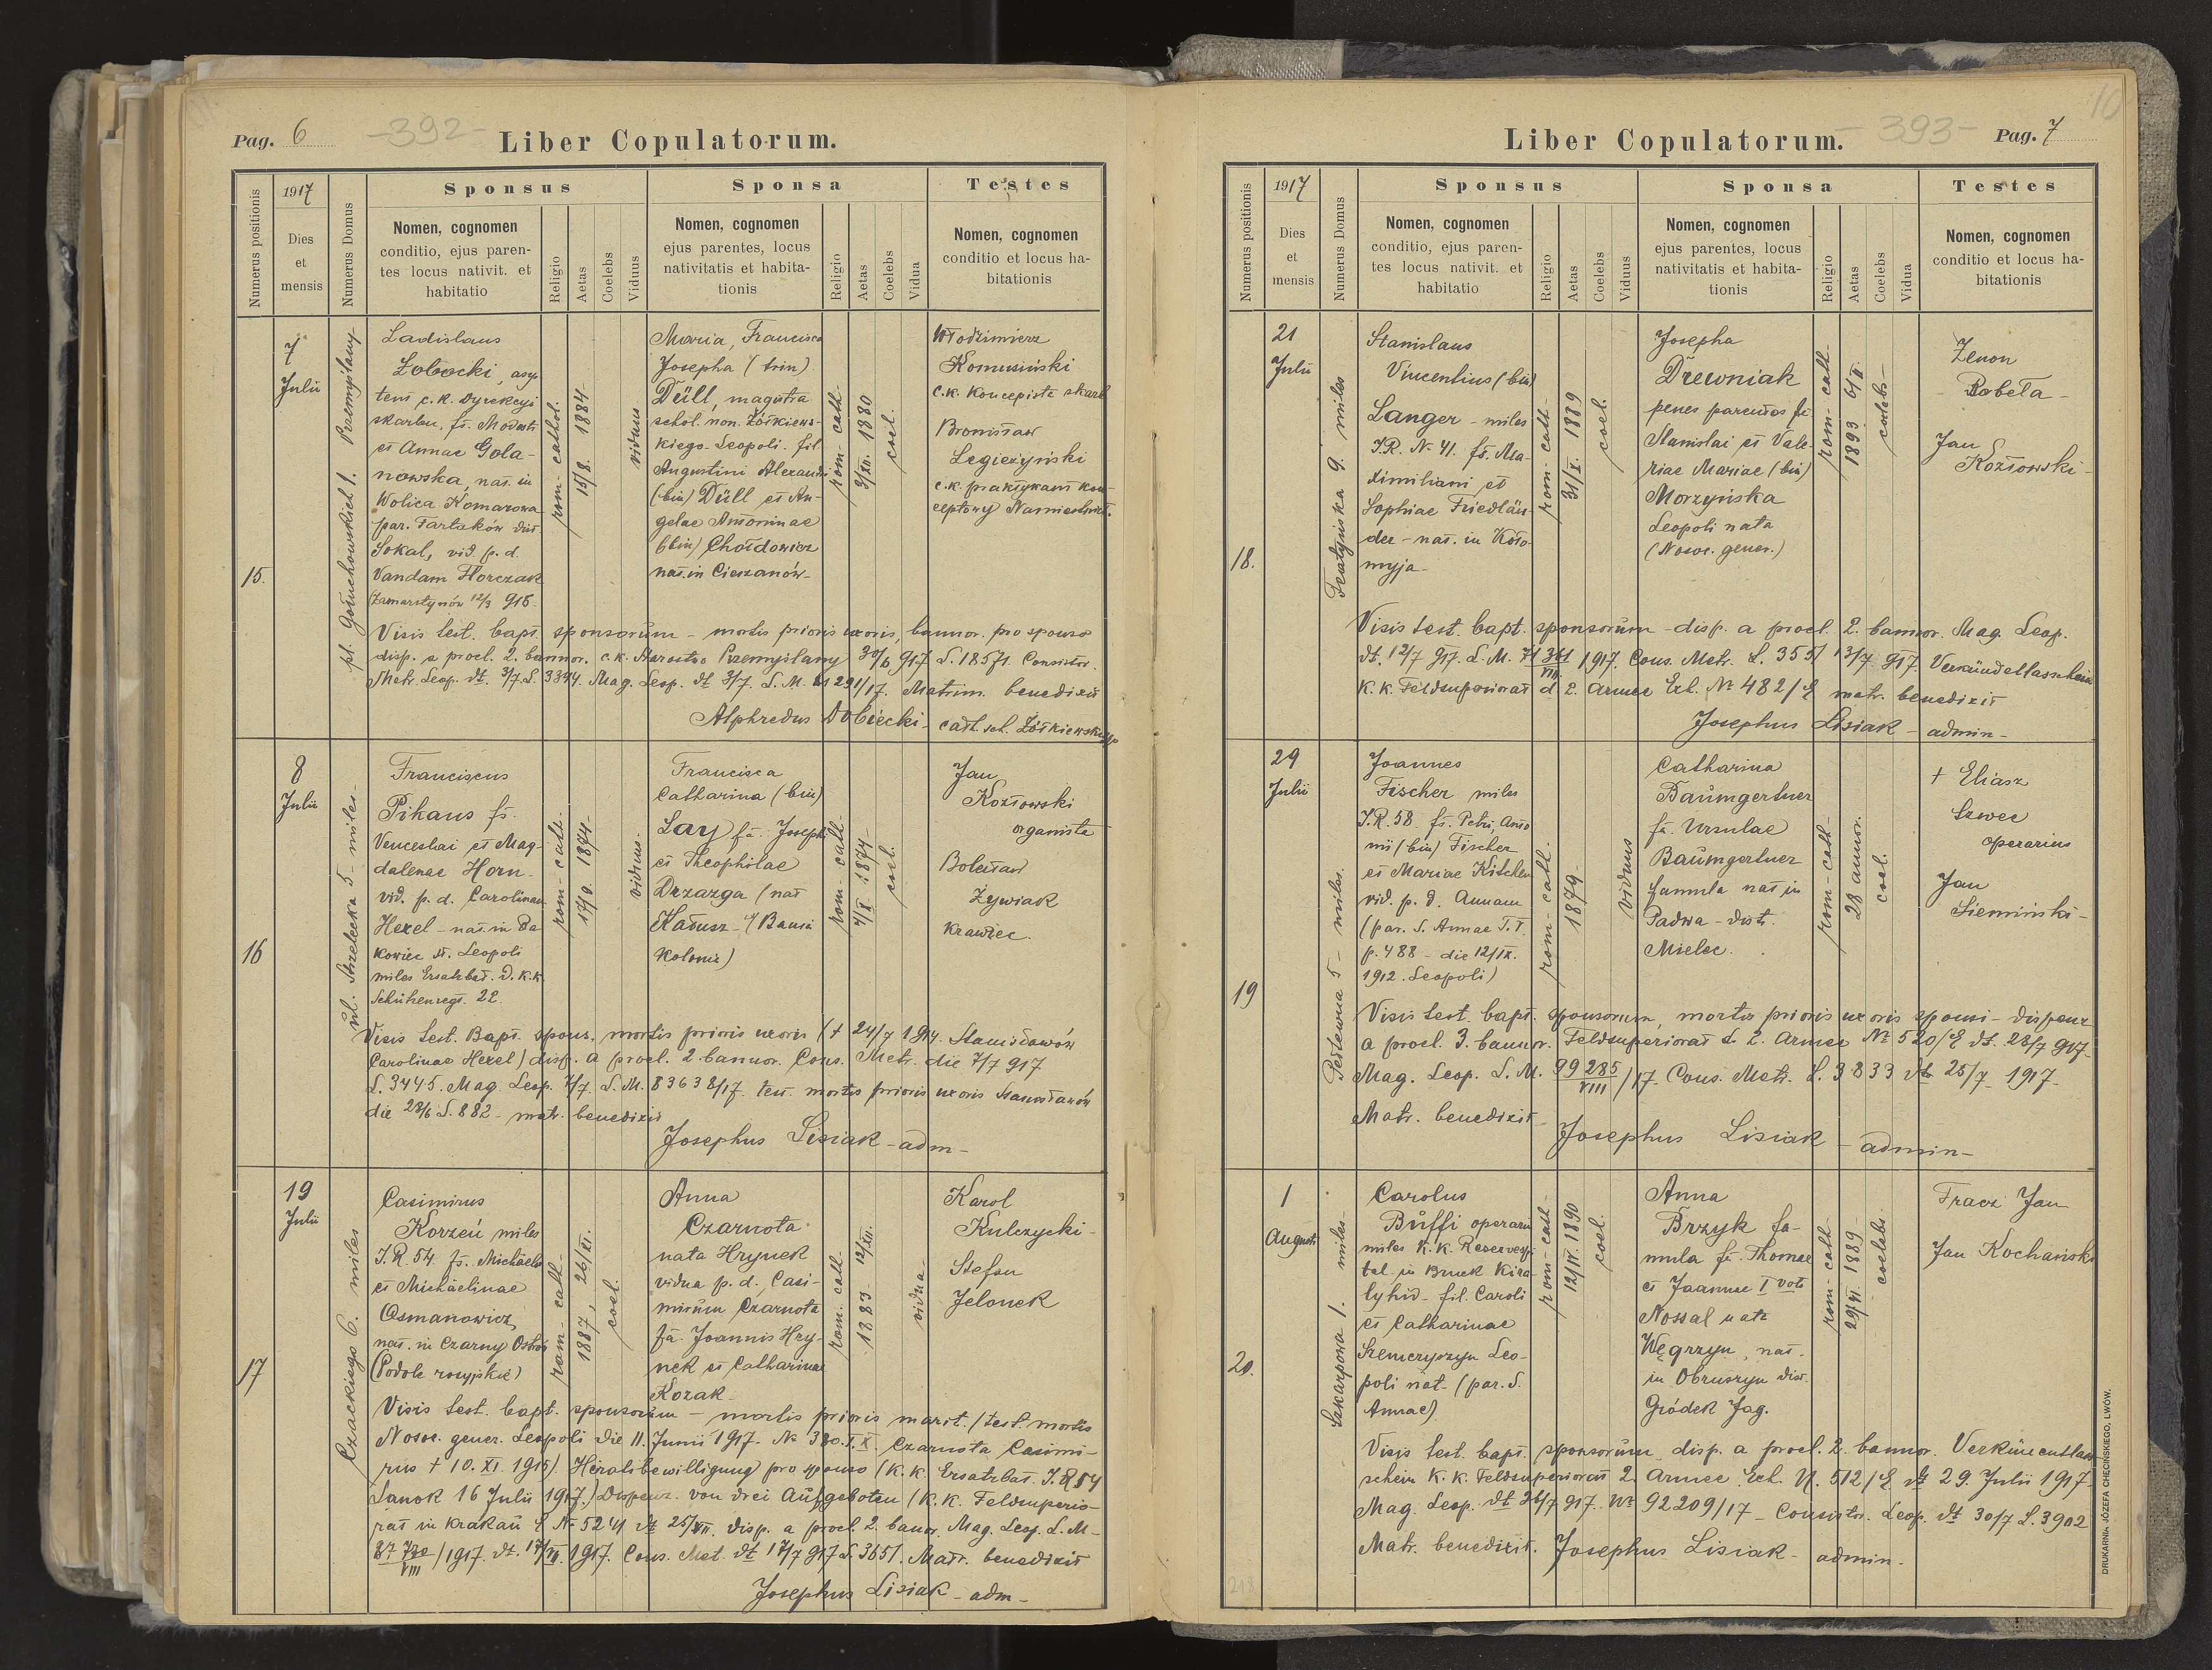 Pag. 6
-392-
Liber Copulatorum.
Numerus positionis
1917
Dies
et
mensis
Numerus Domus
Sponsus
Nomen, cognomen
conditio, ejus paren-
tes locus nativit. et
habitatio
Religio
Aetas
Coelebs
Viduus
Sponsa
Nomen, cognomen
ejus parentes, locus
nativitatis et habita-
tionis
Religio
Aetas
Coelebs
Vidua
Testes
Nomen, cognomen
conditio et locus ha-
bitationis
15.
7
Julii
pl. Gołuchowskich 1. Przemyślany
Ladislaus
Łobocki, asys
tent c.k. Dyrekcyi
skarbu, fs. Modesti
et Annae Gola-
nowska, nat. in
Wolica Komarowa
par. Tartaków dist.
Sokal, vid. p. d.
Vandam Florczak
(Zamarstynów 12/3 915-
rom- cathol.
15/8. 1884
viduus
Maria, Francisca
Josepha (trin)
Düll, magistra
schol. non. Żółkiews-
kiego-Leopoli. fil.
Augustini Alexandri
(bin) Düll et An-
gelae Antoninae
(bin) Chołdowicz
nat. in Cieszanów-
rom- cath-
3/XII. 1880
coel.
Włodzimierz
Komusiński
c.k. koncepista skarb
Bronisław
Legieżyński
c.k. praktykant kon-
ceptowy Namiestnict.
Visis test. bapt. sponsorum - mortis prioris uxoris, bannor. pro sponso
disp. a procl. 2. bannor. c.k. Starostwo Przemyślany 30/6 917 L. 18571. Consistor.
Metr. Leop. dt. 3/7. L. 3394. Mag. Leop. dt 3/7. L. M. 291/17. Matrim. benedixit
Alphredus Dobiecki - cath. sch. Żółkiewskiego
16
8
Julii
ul. Strzelecka 5- miles-
Franciscus
Pikaus fs.
Venceslai et Mag-
dalenae Horn-
vid. p. d. Carolinam
Hexel - nat. in Da
kowiec st. Leopoli
miles Ersatzbat. d. k.k.
Schützenregt. 22.
rom- cath.
17/9. 1874-
viduus.
Francisca
Catharina (bin)
Lay fa. Josephi
et Theophilae
Drzazga (nat
Kolonie)
rom- cath-
4/X. 1874-
coel.
Jan
Kozłowski
organista
Bolesław
Żywiak
krawiec.
Visis test. Bapt. spons. mortis prioris uxoris (+ 24/7 1914. Stanisławów
Carolinae Hexel) disp. a procl. 2. bannor. Cons. Metr. die 7/7 917
L. 3445. Mag. Leop. 7/7. L. M. 83638/17. test. mortis prioris uxoris Stanisławów
die 28/6 L. 882- matr. benedixit
Josephus Lisiak - adm-
17
19
Julii
Czackiego 6. miles
Casimirus
Korzeń miles
I.R. 54. fs. Michaelis
et Michaelinae
Osmanowicz
nat. in Czarny Ostrów
(Podole rosyjskie)
rom- cath-
1887, 26/XI.
coel.
Anna
Czarnota
nata Hrynek
vidua p. d. Casi-
mirum Czarnota
fa. Joannis Hry-
nek et Catharinae
Kozak-
rom. cath-
1883- 12/XII.
vidua-
Karol
Kulczycki-
Stefan
Jelonek
Visis test. bapt. sponsorum - mortis prioris marit. (test. mortis
Nosoc. gener. Leopoli die 11. Junii 1917. No 380. I. X. Czarnota Casimi-
rus + 10. XI. 1915). Heiratsbewilligung pro sponso (K.k. Ersatzbat. I.R 54
Sanok 16 Julii 1917.) Dispens. von drei Aufgeboten (K.k. Feldsuperio-
rat in Krakau No 5241 dt 25/VII. disp. a procl. 2. banor. Mag. Leop. L. M-
/1917. dt. 17/VII. 1917. Cons. Met. dt 17/7 917 L. 3651. Matr. benedixit
Josephus Lisiak - adm-
Liber Copulatorum.
-393-
Pag. 7
10
Numerus positionis
1917
Dies
et
mensis
Numerus Domus
Sponsus
Nomen, cognomen
conditio, ejus paren-
tes locus nativit. et
habitatio
Religio
Aetas
Coelebs
Viduus
Sponsa
Nomen, cognomen
ejus parentes, locus
nativitatis et habita-
tionis
Religio
Aetas
Coelebs
Vidua
Testes
Nomen, cognomen
conditio et locus ha-
bitationis
18.
21
Julii
9. miles
Stanislaus
Vincentius (bin)
Langer - miles
I.R. No 41. fs. Ma-
ximiliani et
Sophiae Friedlän-
der - nat. in Koło-
myja-
rom- cath-
31/X. 1889
coel.
Josepha
Drewniak
penes parentes fi.
Stanislai et Vale-
riae Mariae (bin)
Morzyńska
Leopoli nata
(Nosoc. gener.)
rom- cath-
1893 6/II.
coelebs-
Zenon
Robeta-
Jan
Kozłowski-
Visis test. bapt. sponsorum - disp. a procl. 2. bannor. Mag. Leop.
dt. 12/7 917. L. M. 71 361/VIII 1917. Cons. Metr. L. 3551 13/7 917. Verkündetlasschein
K.k. Feldsuperiorat d. 2. Armee Exl. No 482/E matr. benedixit
Josephus Lisiak - admin-
19
29
Julii
5- miles.
Joannes
Fischer miles
I.R. 58 fs. Petri, Anto
nii (bin) Fischer
et Mariae Kitschen
vid. p. d. Annam
(par. S. Annae T. V.
p. 488 - die 12/IX.
1912. Leopoli)
rom- cath.
1879
viduus
Catharina
Baumgertner
fa. Ursulae
Baumgertner
famula nat in
Padwa - distr.
Mielec.
rom- cath-
28 annor.
coel.
+ Eliasz
Szwec
operarius
Jan
Siemiński-
Visis test. bapt. sponsorum, mortis prioris uxoris sponsi - dispens
a procl. 3. bannor. Feldsuperiorat d. 2. Armee No 520/E dt. 28/7 917-
Mag. Leop. L. M. 99 285/VIII /17. Cons. Metr. L. 3833 dto 25/7 1917-
Matr. benedixit-
Josephus Lisiak - admin-
20.
1
Augusti
Szkarpowa 1. miles-
Carolus
Buffi operarius
miles K.k. Reservespi
tal. in Bruck Kira-
lyhid- fil. Caroli
et Catharinae
Szemeryszyn Leo-
poli nat- (par. S.
Annae)
rom- cath-
12/IV. 1890
coel.
Anna
Brzyk fa-
mula fa. Thomae
et Joannae I voti
Nossal nata
Węgrzyn, nat.
in Obruszyn dist.
Gródek Jag.
rom- cath-
29/VI. 1889-
coelebs.
Tracz Jan
Jan Kochański
Visis test. bapt. sponsorum disp. a procl. 2. bannor. Verkünentlas
schein K.k. Feldsuperiorat 2. Armee Exl. N. 512/E dt 29. Julii 1917-
Mag. Leop. dt 26/7 917. No 92209/17 - Consistor. Leop. dt 30/7 L. 3902
Matr. benedixit. Josephus Lisiak - admin-
DRUKARNIA JÓZEFA CHĘCIŃSKIEGO, LWÓW.